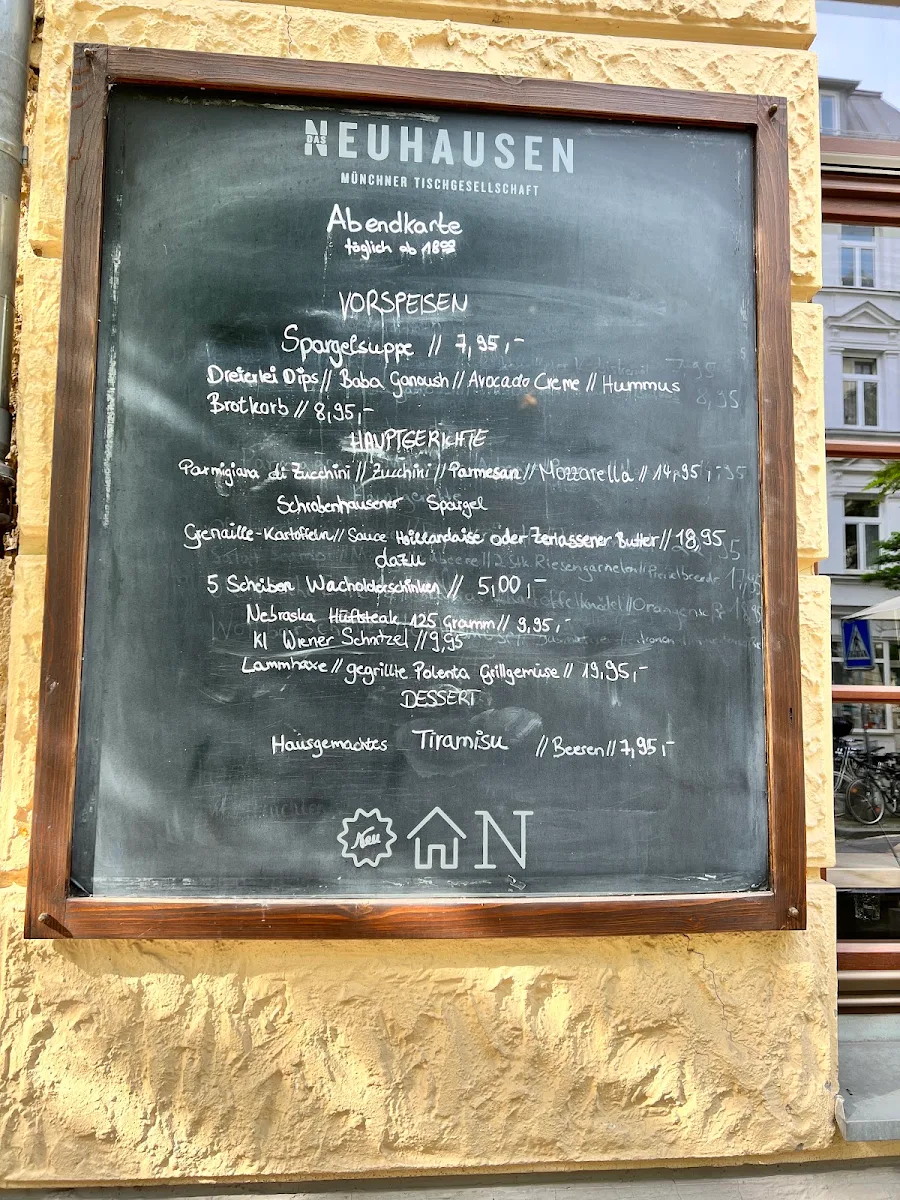 DAS NEUHAUSEN
MÜNCHNER TISCHGESELLSCHAFT
Abendkarte
täglich ab 18⁰⁰
VORSPEISEN
Spargelsuppe // 7,95,-
Dreierlei Dips // Baba Ganoush // Avocado Creme // Hummus
Brotkorb // 8,95,-
HAUPTGERICHTE
Parmigiana di Zucchini // Zucchini // Parmesan // Mozzarella // 14,95,-
Schrobenhausener Spargel
Grenaille-Kartoffeln // Sauce Hollandaise oder Zerlassener Butter // 18,95
dazu
5 Scheiben Wacholderschinken // 5,00,-
Nebraska Hüftsteak 125 Gramm // 9,95,-
Kl Wiener Schnitzel // 9,95
Lammhaxe // gegrillte Polenta Grillgemüse // 19,95,-
DESSERT
Hausgemachtes Tiramisu // Beeren // 7,95,-
Neu N